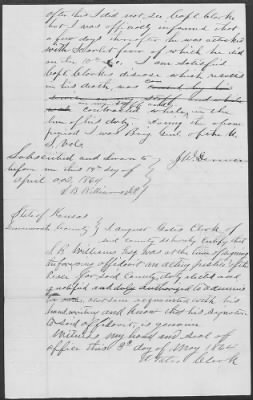 after this I did not see Capt Clarke
but I was officially informed that
a few days thereafter he was attacked
with Scarlet fever of which he died
on the 10th I am satisfied
Capt Clarkes disease which resulted
in his death, was caused by his
contracted while in the
line of his duty. During the afore
period I was Brig Genl of the U.
S. Vols.
Subscribed and sworn to
before me this 19th day of
April A.D. 1864
J B Williams
State of Kansas
County } I August Gates Clerk of
said county do hereby certify that
J B Williams Esq was at the time of signing
the foregoing affidavit an acting Justice of the
Peace for said County, duly elected and
qualified and duly authorized to administer
am acquainted with his
handwriting and know that his signature
to said affidavit is genuine
Witness my hand and seal of
office this 3d day of May 1864
Clerk